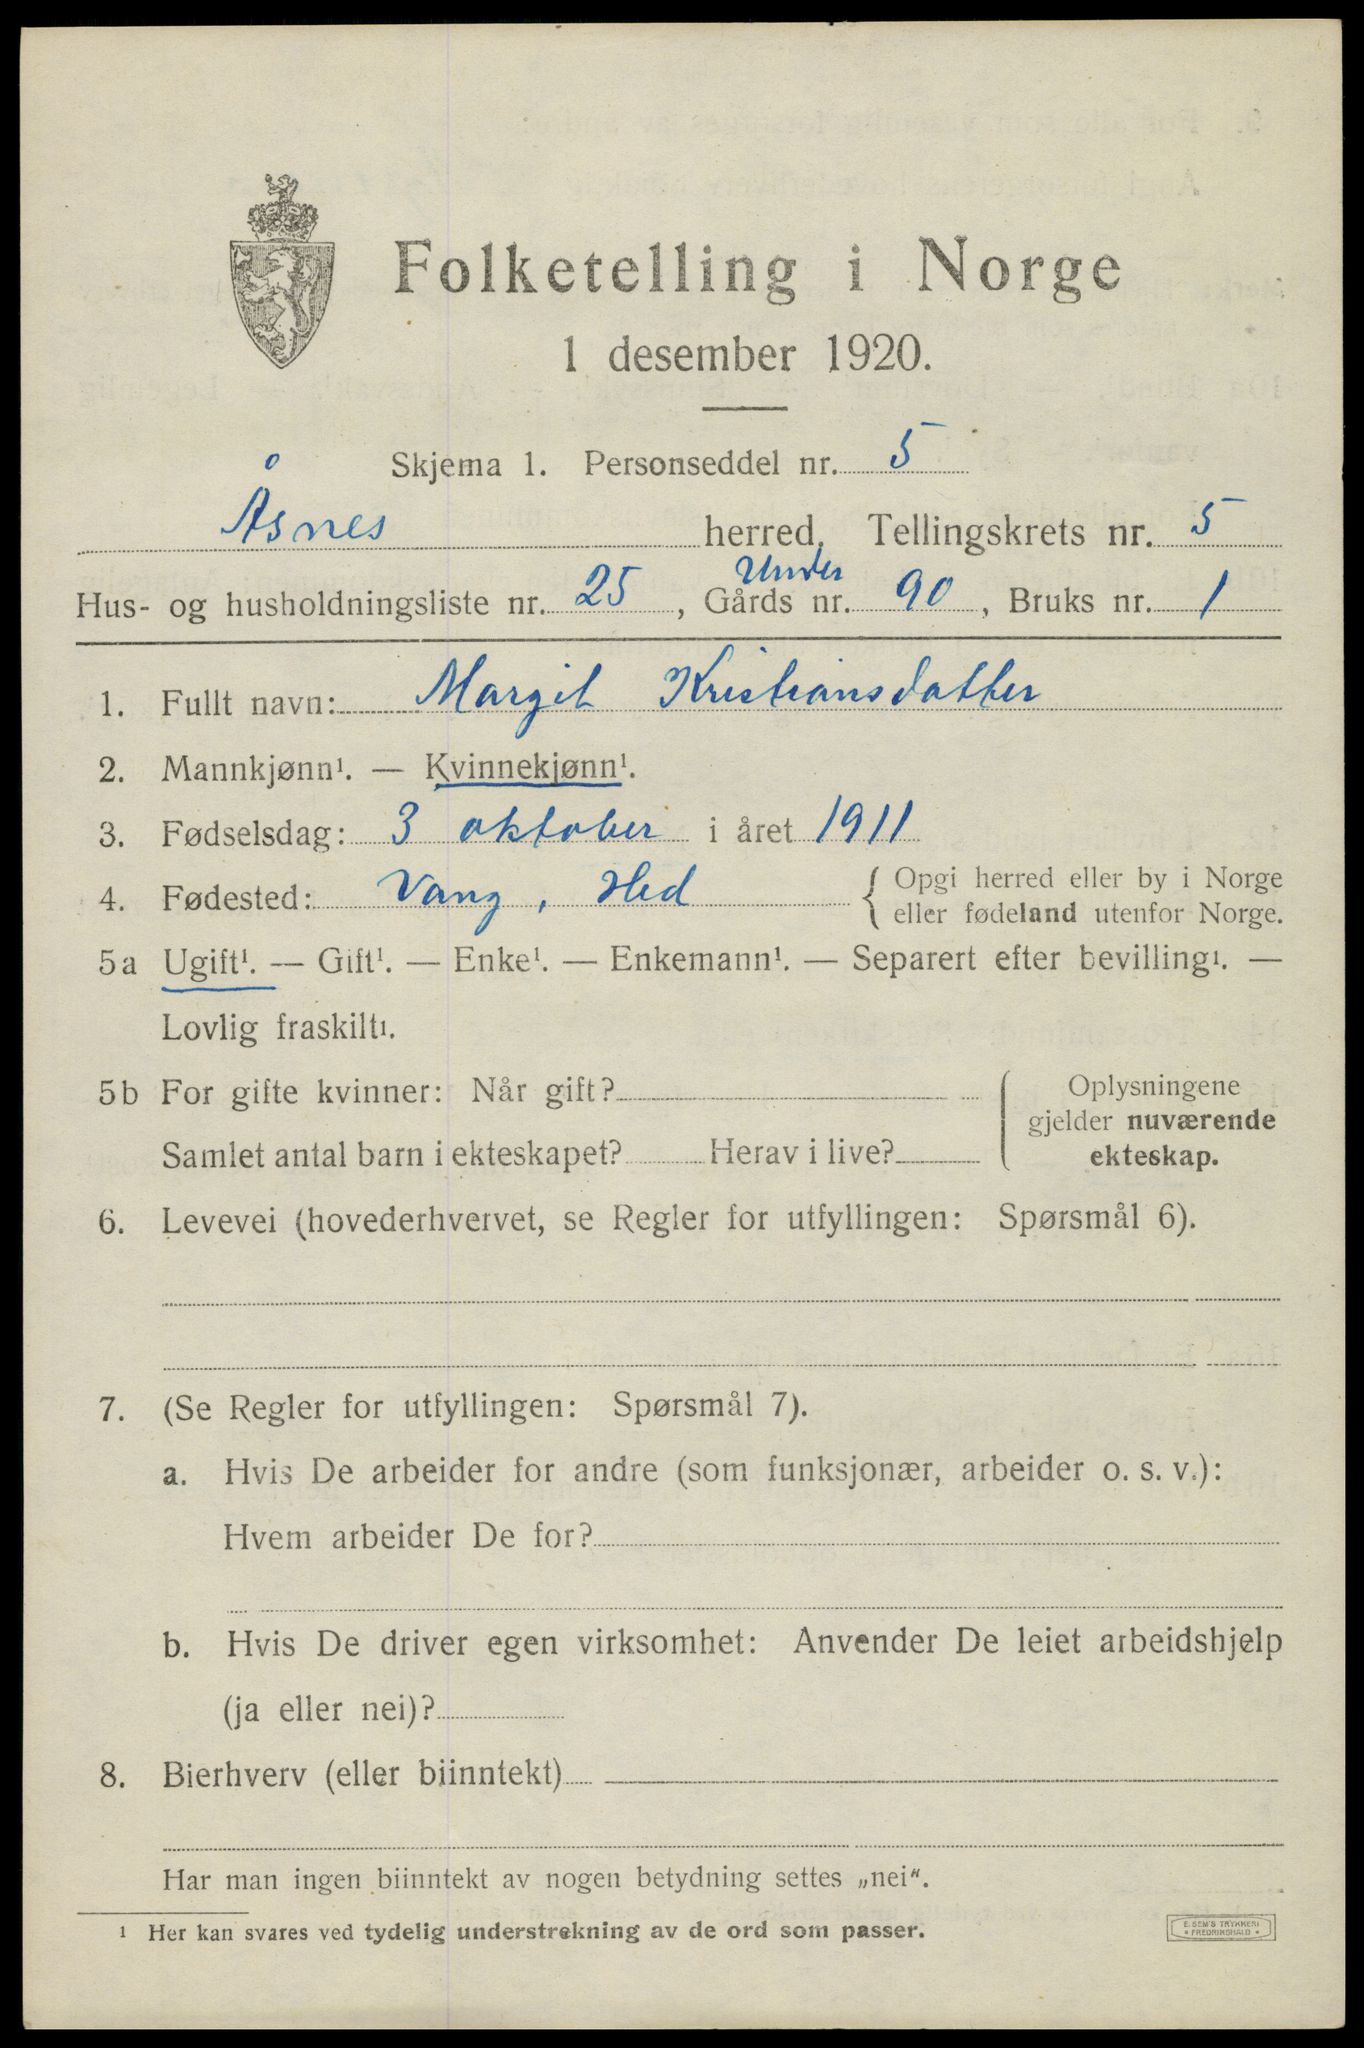 Folketelling i Norge
1 desember 1920.
Skjema 1. Personseddel nr. 5
Åsnes herred. Tellingskrets nr. 5
Under
Hus- og husholdningsliste nr. 25, Gårds nr. 90, Bruks nr. 1
1. Fullt navn: Margit Kristiansdatter
2. Mannkjønn¹. — Kvinnekjønn¹.
3. Fødselsdag: 3 oktober i året 1911
4. Fødested: Vang, Hed { Opgi herred eller by i Norge
eller fødeland utenfor Norge.
5a Ugift¹. — Gift¹. — Enke¹. — Enkemann¹. — Separert efter bevilling¹. —
Lovlig fraskilt¹.
5b For gifte kvinner: Når gift?
Samlet antal barn i ekteskapet? Herav i live?
Oplysningene
gjelder nuværende
ekteskap.
6. Levevei (hovederhvervet, se Regler for utfyllingen: Spørsmål 6).
7. (Se Regler for utfyllingen: Spørsmål 7).
a. Hvis De arbeider for andre (som funksjonær, arbeider o. s. v.):
Hvem arbeider De for?
b. Hvis De driver egen virksomhet: Anvender De leiet arbeidshjelp
(ja eller nei)?
8. Bierhverv (eller biinntekt)
Har man ingen biinntekt av nogen betydning settes „nei“.
¹ Her kan svares ved tydelig understrekning av de ord som passer.
E. SEM'S TRYKKERI
FREDRIKSHALD